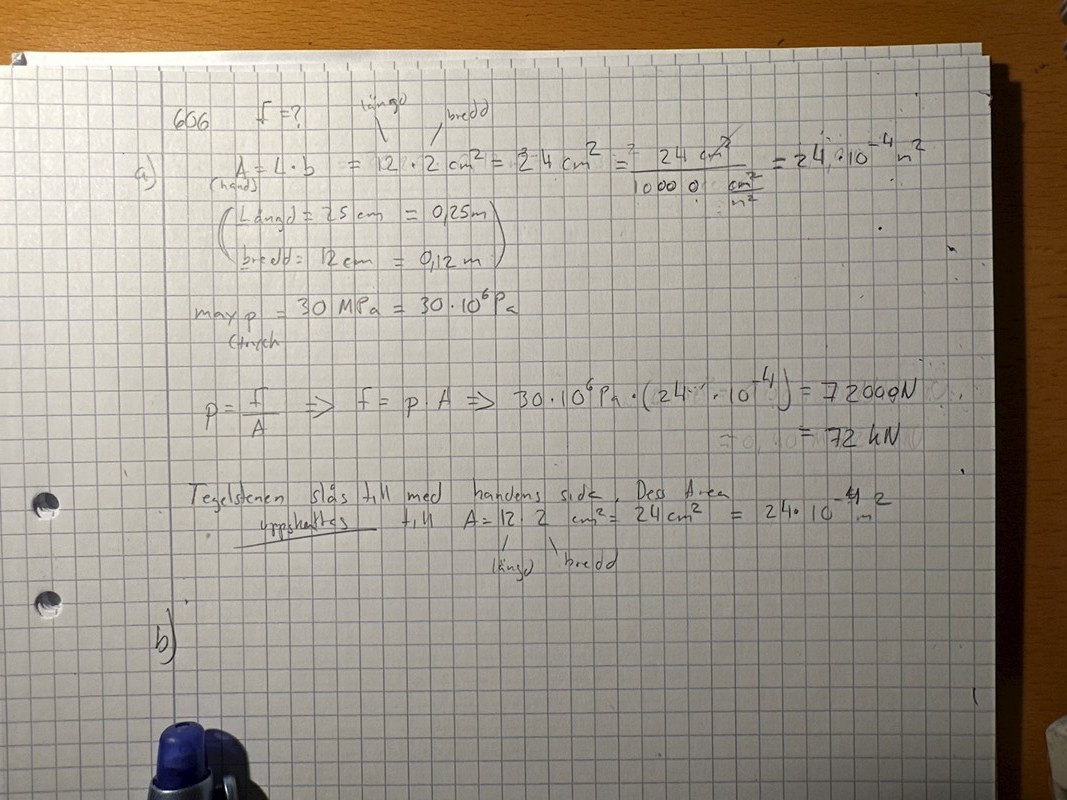 606 f = ? längd bredd
a) A = L · b = 12 · 2 cm² = 24 cm² = 24 cm² / 10000 cm²/m² = 24 · 10⁻⁴ m²
(hand)
(Längd = 25 cm = 0,25m
bredd = 12 cm = 0,12 m)
max p = 30 MPa = 30 · 10⁶ Pa
p = f/A => f = p · A => 30 · 10⁶ Pa · (24 · 10⁻⁴) = 72000N
= 72 kN
Tegelstenen slås till med handens side. Dess Area
uppskattas till A = 12 · 2 cm² = 24 cm² = 24 · 10⁻⁴ m²
längd bredd
b)